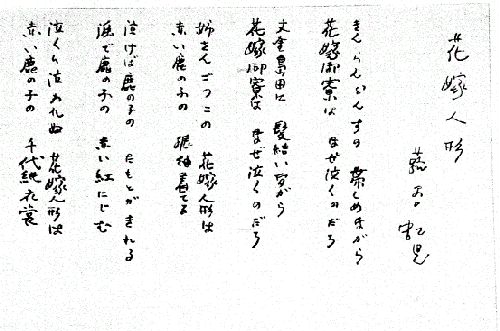 花嫁人形
蕗谷 虹児
きんらんどんすの 帯しめながら
花嫁御寮は なぜ泣くのだろ
文金島田に 髪結いながら
花嫁御寮は なぜ泣くのだろ
姉さんごっこの 花嫁人形は
赤い鹿の子の 振袖着てる
泣けば鹿の子の たもとがきれる
涙で鹿の子の 赤い紅にじむ
泣くに泣かれぬ 花嫁人形は
赤い鹿の子の 千代紙衣裳